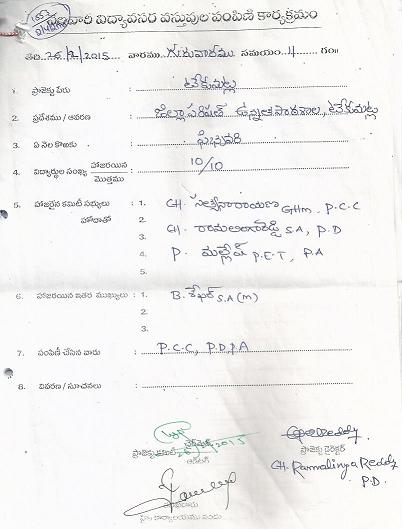 నెలవారి విద్యావసర వస్తువుల పంపిణి కార్యక్రమం
తేది. 26/2/2015 వారము గురువారము సమయం 4 గం॥
1. ప్రాజెక్టు పేరు : టేకుమట్ల
2. ప్రదేశము / ఆవరణ : జిల్లా పరిషత్ ఉన్నత పాఠశాల, టేకుమట్ల
3. ఏ నెల కొఱకు : ఫిబ్రవరి
4. విద్యార్థుల సంఖ్య హాజరయిన / మొత్తము : 10/10
5. హాజరైన కమిటీ సభ్యులు : 1. CH. సత్యనారాయణ GHM. P.C.C
హోదాతో 2.
3. CH. రామలింగారెడ్డి S.A, P.D
4. P. మల్లేష్ P.E.T, P.A
5.
6. హాజరయిన ఇతర ముఖ్యులు : 1. B. శేఖర్ S.A (M)
2.
3.
7. పంపిణీ చేసిన వారు : P.C.C, P.D, P.A
8. వివరణ / సూచనలు :
చైర్మెన్
ప్రాజెక్టు కమిటి 2015
ప్రాజెక్టు డైరెక్టర్
CH. Ramalinga Reddy
P.D.